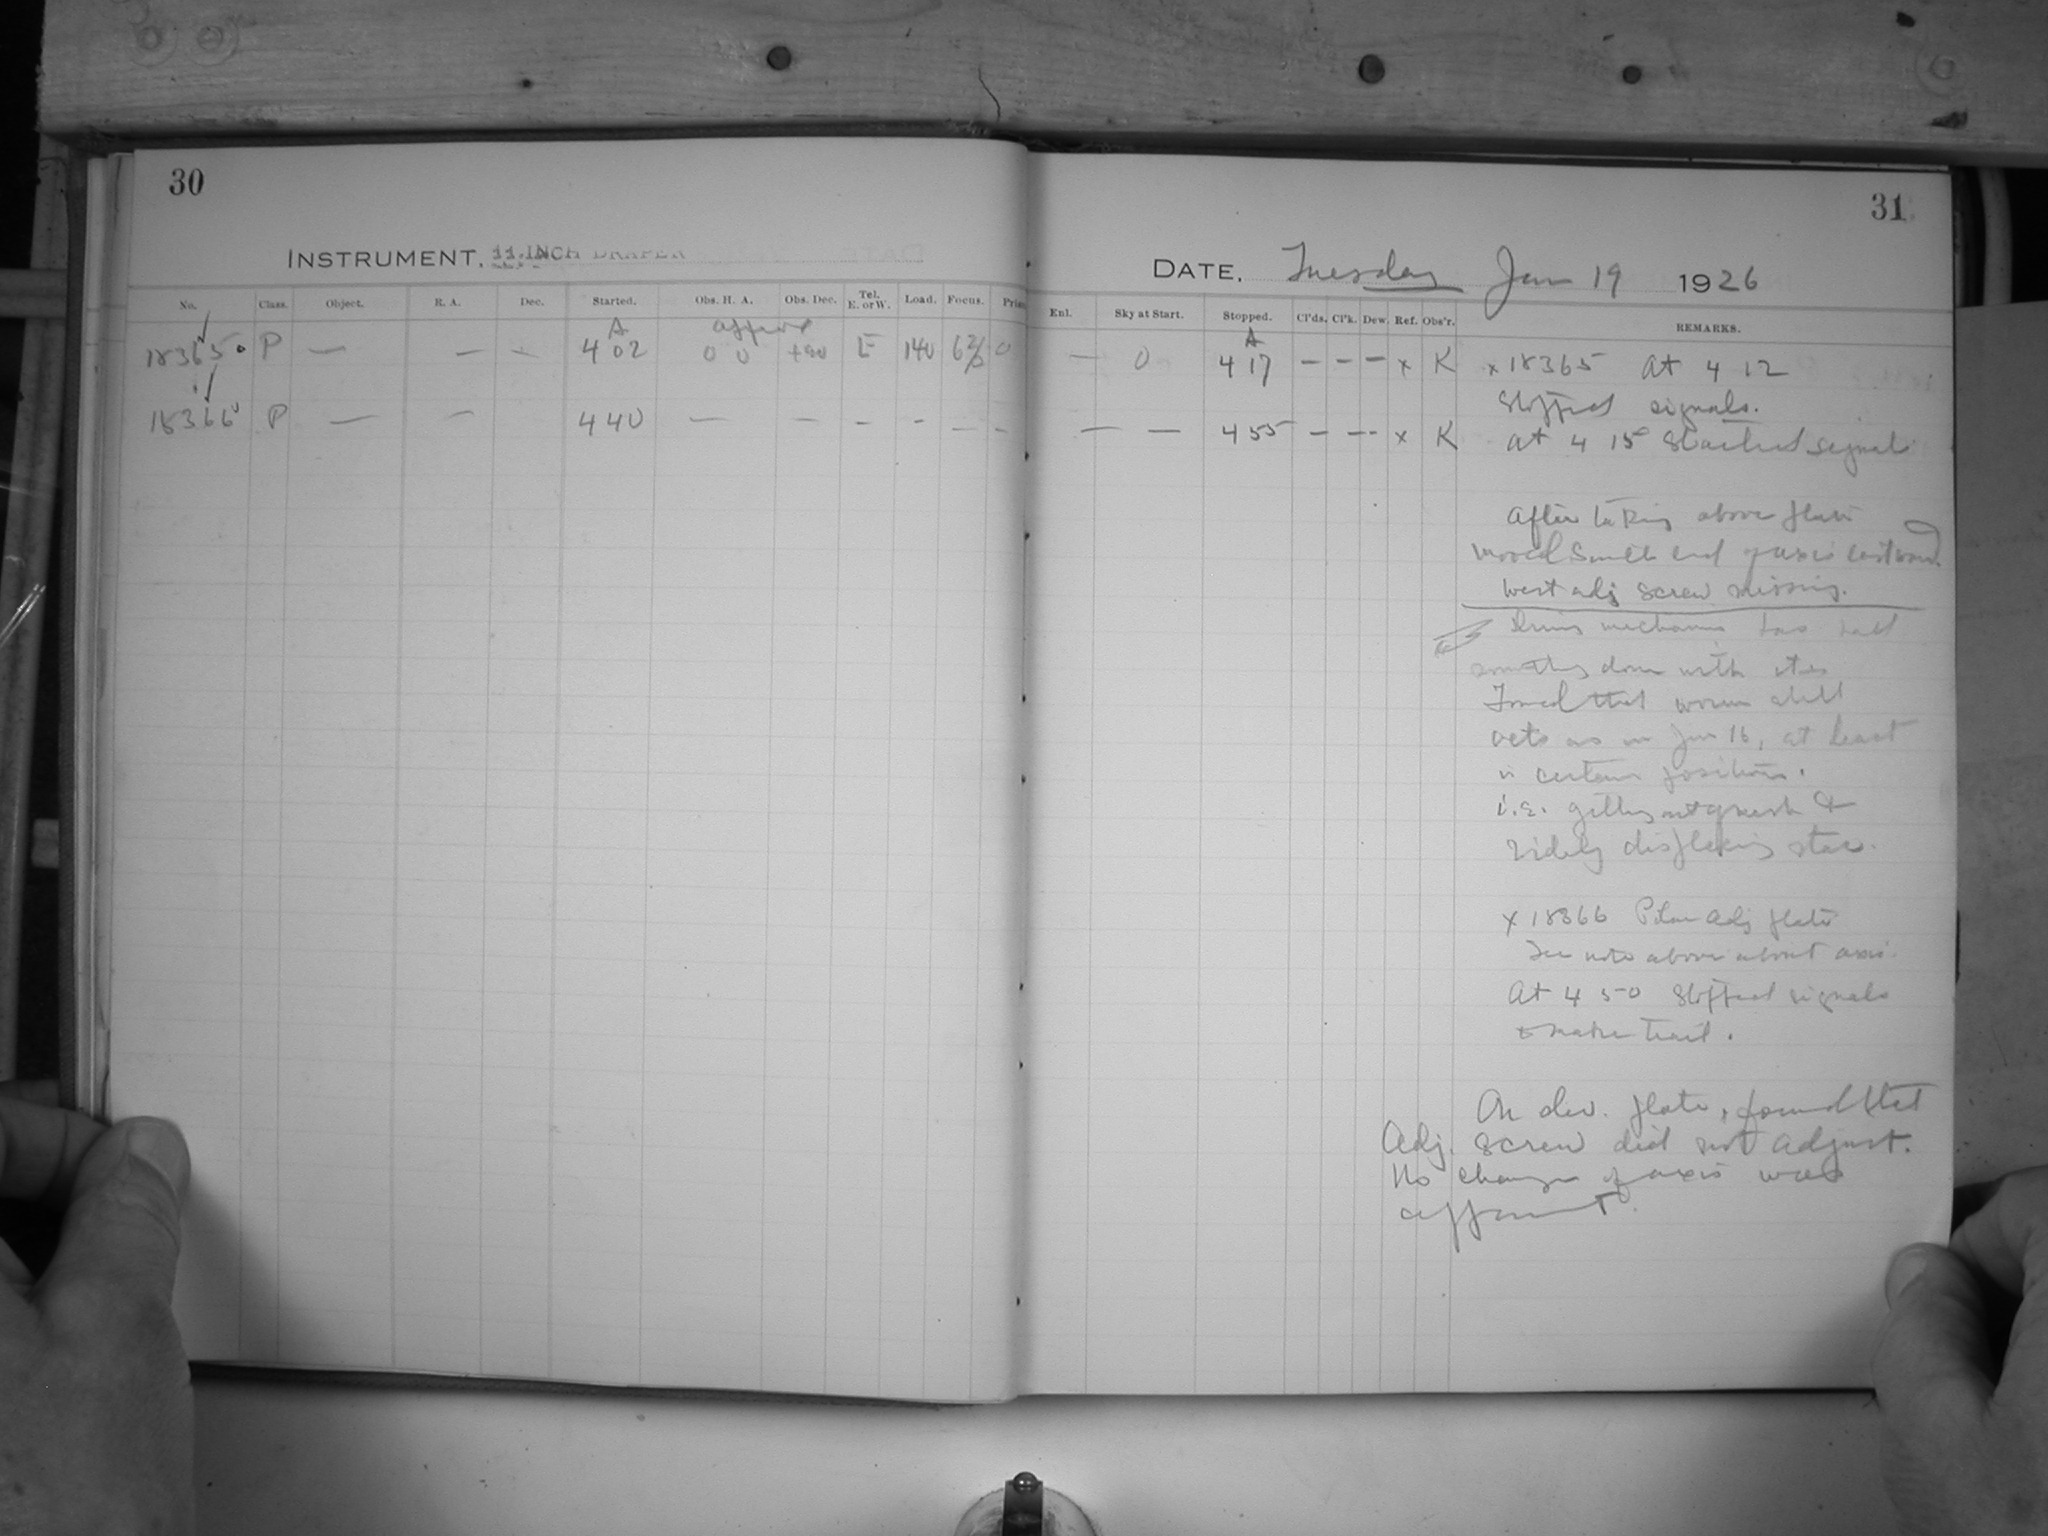 30
INSTRUMENT. 11-INCH DRAPER
No. Class. Object. R. A. Dec. Started. Obs. H. A. Obs. Dec. Tel. E. or W. Load. Focus.
18365 P — — — A 4 02 approx 0 0 +90 E 140 6 0
18366 P — — 4 40 — — - - — -
31
DATE. Tuesday Jan 19 1926
Enl. Sky at Start. Stopped. Cl'ds. Cl'k. Dew. Ref. Obs'r. REMARKS.
— 0 A 4 17 — — — x K
— — 4 55 — — - x K
x 18365 At 4 12
stopped signals.
At 4 15 started signals
After taking above plate
moved South end of axis eastward.
West adj screw missing.
mechanism has had
something done with it
Found that worm still
acts as on Jan 16, at least
in certain positions.
i.e. getting out of mesh &
displacing star.
x 18366 Polar Adj plate
See note above about axis.
At 4 50 stopped signals
to make trail.
On dev. plate, found that
Adj. screw did not adjust.
No change of axis was
apparent.